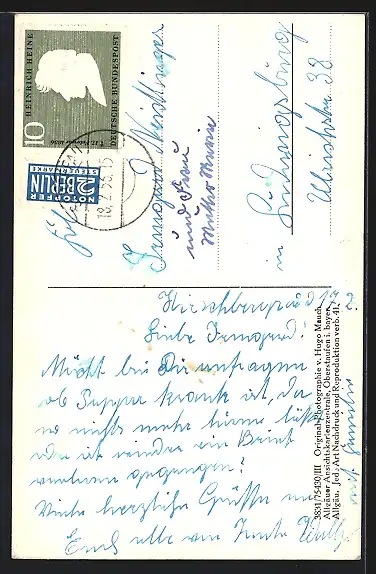 HEINRICH HEINE
DEUTSCHE BUNDESPOST
10
NOTOPFER
2 BERLIN
STEUERMARKE
18.2.56.15
Irmgard
und Frau
Mutter
in Ludwigsburg
Ulrichstr. 38
3831/75430/III Original-Photographie v. Hugo Mauch,
Allgäuer Ansichtskartenzentrale, Oberstaufen i. bayer.
Allgäu. (Jed. Art Nachdruck und Reproduktion verb. 41)
Liebe Irmgard!
Möcht bei Dir anfragen
ob krank ist, da
so nichts mehr hören läßt
oder ist wieder ein Brief
verloren gegangen?
Viele herzliche Grüße an
Euch alle von Tante